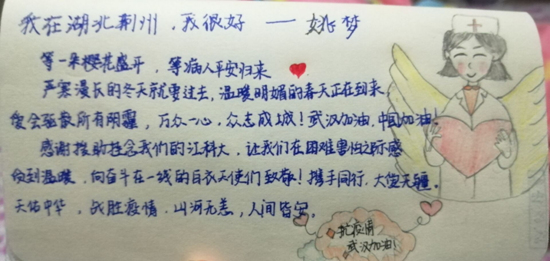 我在湖北荆州,我很好 —— 姚梦
等一朵樱花盛开,等病人平安归来
严寒漫长的冬天就要过去,温暖明媚的春天正在到来
爱会驱散所有阴霾,万众一心,众志成城!武汉加油,中国加油!
感谢援助包含我们的江科大,让我们在困难害怕之际感
受到温暖,向奋斗在一线的白衣天使们致敬!携手同行,大爱无疆,
天佑中华,战胜疫情,山河无恙,人间皆安。
抗疫情
武汉加油!